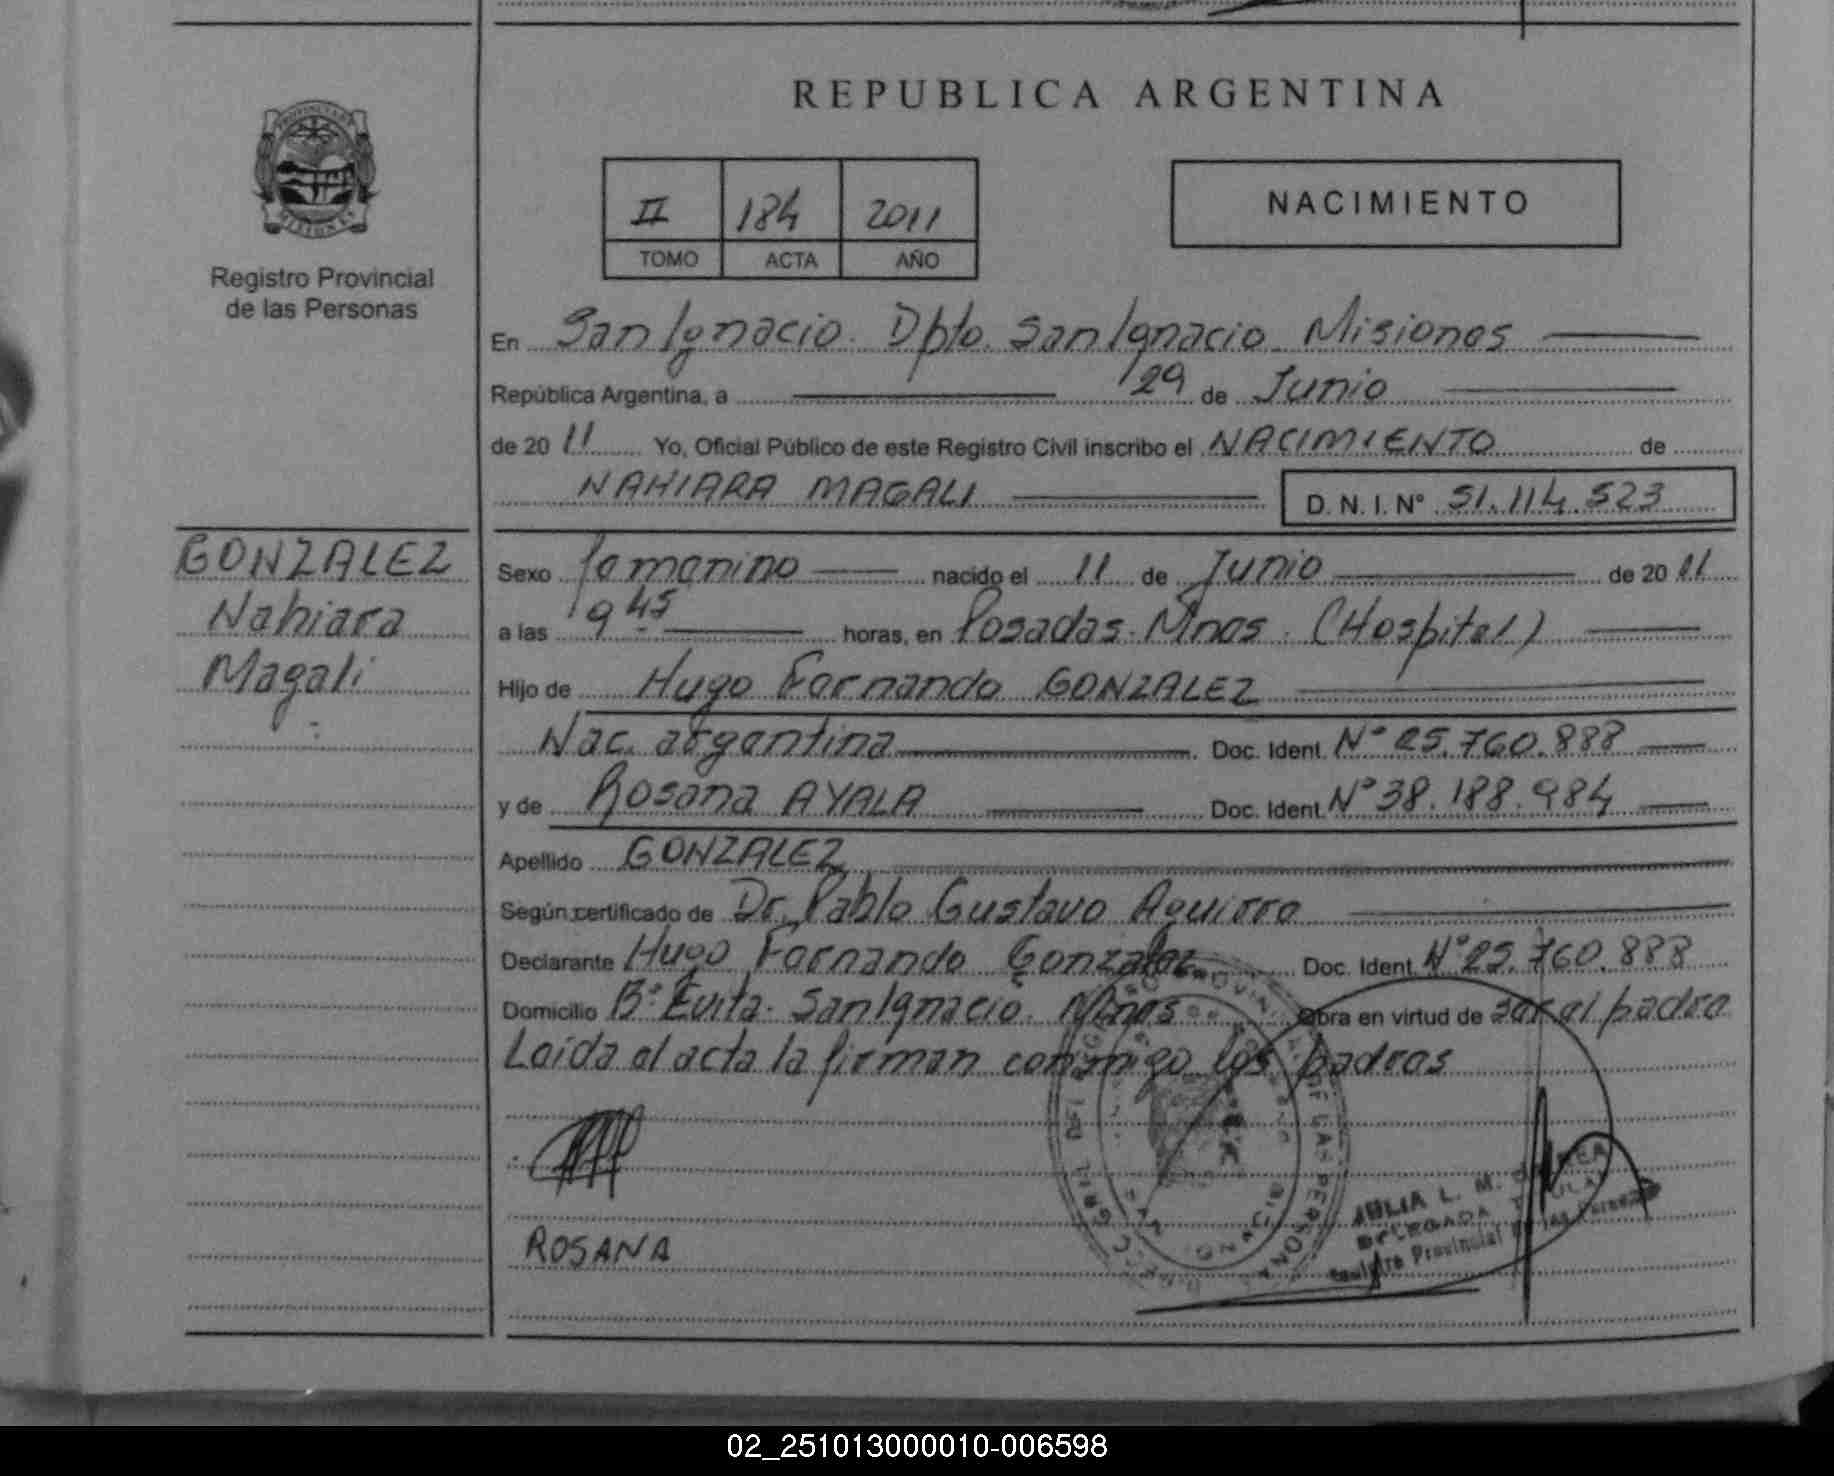 REPUBLICA ARGENTINA
PROVINCIA DE
MISIONES
Registro Provincial
de las Personas
II 184 2011
TOMO ACTA AÑO
NACIMIENTO
En San Ignacio. Dpto. San Ignacio. Misiones
República Argentina, a 29 de Junio
de 2011 Yo, Oficial Público de este Registro Civil inscribo el NACIMIENTO de
NAHIARA MAGALI D. N. I. N° 51.114.523
GONZALEZ
Nahiara
Magali
Sexo femenino nacido el 11 de Junio de 2011
a las 9 45 horas, en Posadas. Mnes. (Hospital)
Hijo de Hugo Fernando GONZALEZ
Nac. argentina Doc. Ident. N° 25.760.888
y de Rosana AYALA Doc. Ident. N° 38.188.984
Apellido GONZALEZ
Según certificado de Dr. Pablo Gustavo Aguirre
Declarante Hugo Fernando Gonzalez Doc. Ident. N° 25.760.888
Domicilio B° Evita. San Ignacio. Mnes Obra en virtud de ser el padre
Leida el acta la firman conmigo los padres
ROSANA
JULIA L. M.
DELEGADA
Registro Provincial de las Personas
02_251013000010-006598